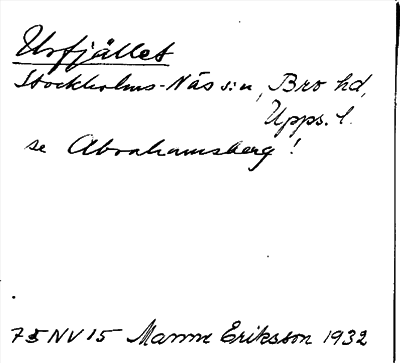 Urfjället
Stockholms-Näs sn, Bro hd,
Upps. l.
se Abrahamsberg!
75NV15 Manne Eriksson 1932